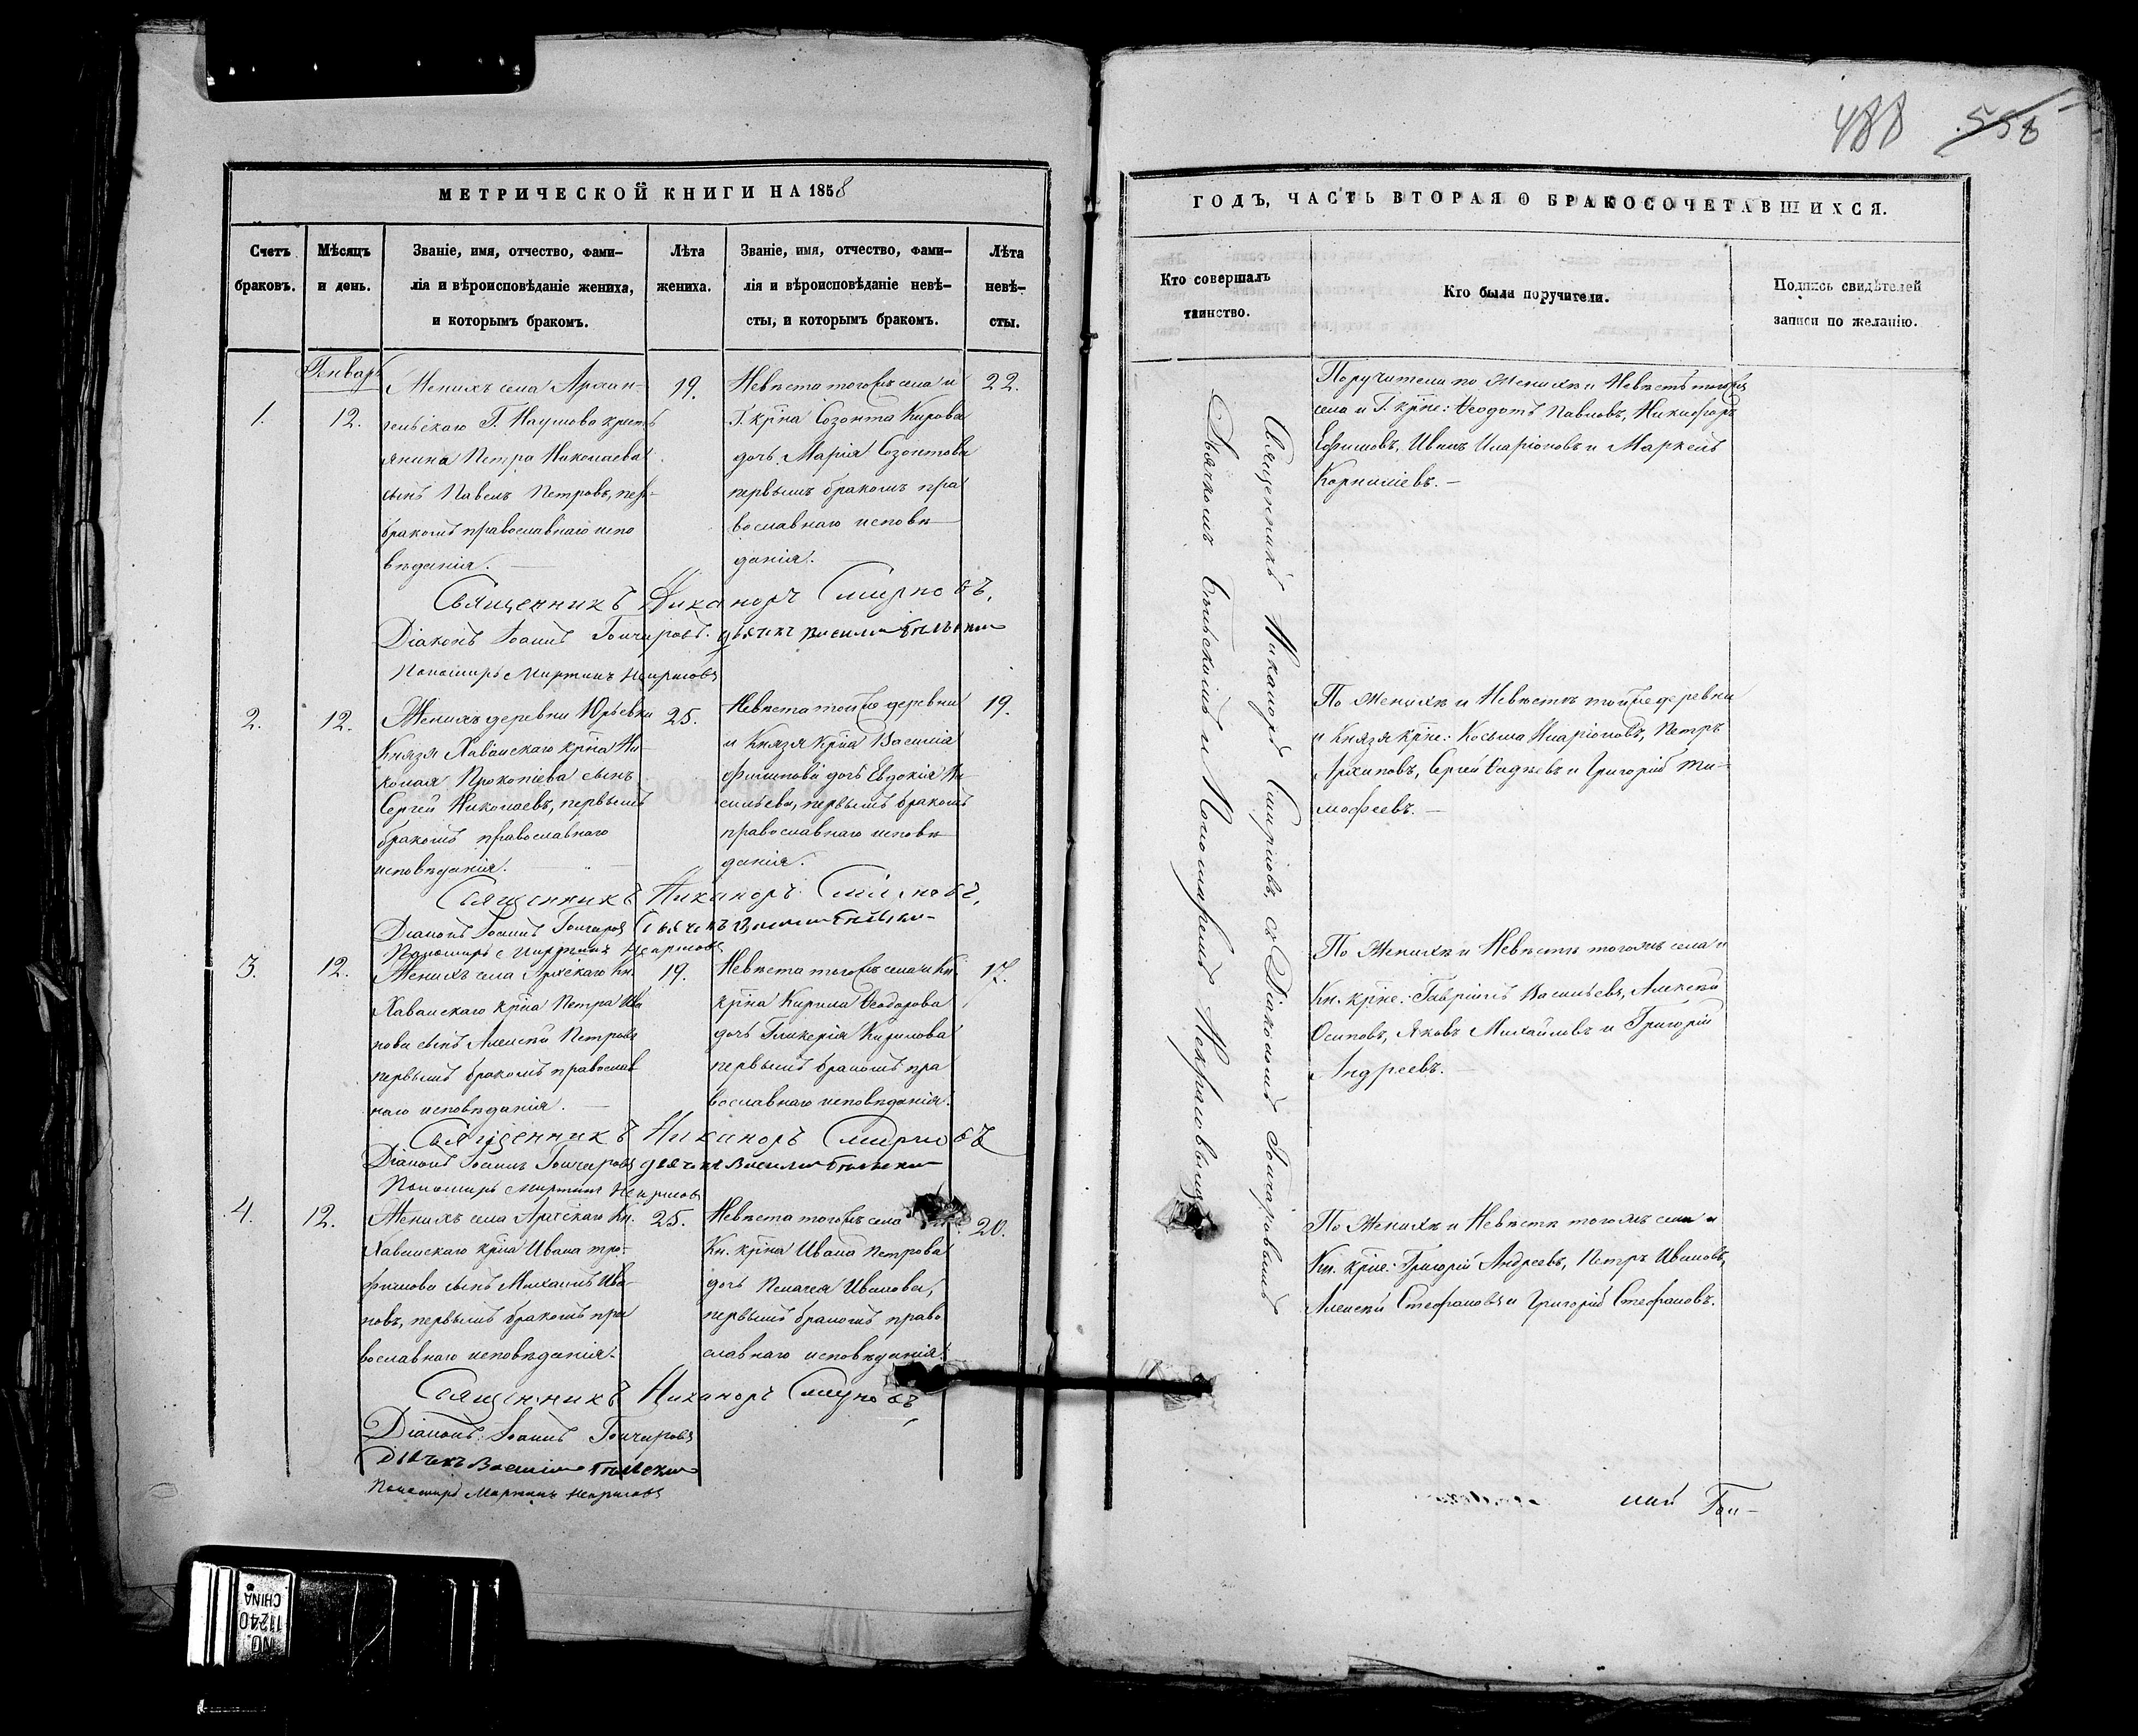 488 558
МЕТРИЧЕСКОЙ КНИГИ НА 1858
Счетъ браковъ.
Мѣсяцъ и день.
Званіе, имя, отчество, фами-
лія и вѣроисповѣданіе жениха,
и которымъ бракомъ.
Лѣта жениха.
Званіе, имя, отчество, фами-
лія и вѣроисповѣданіе невѣ-
сты, и которымъ бракомъ.
Лѣта невѣ-
сты.
Генварь
1.
12.
Женихъ села Архан-
гельскаго Г. Наумова кресть
янина Петра Николаева
сынъ Павелъ Петровъ, пер-
бракомъ православнаго испо
вѣданія.
19.
Невѣста того жъ села и
Г. крна Созонта Кирова
дочь Марія Созонтова
первымъ бракомъ пра
вославнаго исповѣ
данія.
22.
Священникъ Никаноръ Смирновъ.
Діаконъ Іоаннъ Гончаровъ. дьячекъ Василій
Пономарь Мартинъ Некрасовъ
2.
12.
Женихъ деревни Юрьевки
Князя Хованскаго крна Ни-
колая Прокопіева сынъ
Сергей Николаевъ, первымъ
бракомъ православнаго
исповѣданія.
25.
Невѣста той же деревни
и Князя крна Василія
Филиппова дочь Евдокія Ва
сильева, первымъ бракомъ
православнаго исповѣ
данія.
19.
Священникъ Никаноръ Смирновъ,
Діаконъ Іоаннъ Гончаровъ дьячекъ Василій
Пономарь Мартинъ Некрасовъ
3.
12.
Женихъ села Кн.
Хованскаго крна Петра Ива
нова сынъ Алексѣй Петровъ
первымъ бракомъ православ
наго исповѣданія.
19.
Невѣста того жъ села и Кн.
крна Кирила Ѳеодорова
дочь Гликерія Кирилова
первымъ бракомъ пра
вославнаго исповѣданія.
17.
Священникъ Никаноръ Смирновъ
Діаконъ Іоаннъ Гончаровъ дьячекъ Василій
Пономарь Мартинъ Некрасовъ
4.
12.
Женихъ села Кн.
Хованскаго крна Ивана Тро-
фимова сынъ Михаилъ Ива-
новъ, первымъ бракомъ пра
вославнаго исповѣданія.
25.
Невѣста того жъ села
Кн. крна Ивана Петрова
дочь Пелагея Иванова,
первымъ бракомъ право
славнаго исповѣданія.
20.
Священникъ Никаноръ Смирновъ
Діаконъ Іоаннъ Гончаровъ
Дьячекъ Василій
Пономарь Мартинъ Некрасовъ
ГОДЪ, ЧАСТЬ ВТОРАЯ О БРАКОСОЧЕТАВШИХСЯ.
Кто совершалъ
таинство.
Кто были поручители.
Подпись свидѣтелей
записи по желанію.
Священникъ Никаноръ Смирновъ, съ Діакономъ Гончаровымъ
Дьячкомъ и Пономаремъ Некрасовымъ
Поручители по Женихѣ и Невѣстѣ того жъ
села и Г. крне: Ѳеодотъ Павловъ, Никифоръ
Ефимовъ, Иванъ Иларіоновъ и Маркелъ
Корниліевъ.
По Женихѣ и Невѣстѣ той же деревни
и Князя крне: Косьма Иларіоновъ, Петръ
Архиповъ, Сергей и Григорій Ти-
мофеевъ.
По Женихѣ и Невѣстѣ того жъ села и
Кн. крне: Гавріилъ Васильевъ, Алексѣй
Осиповъ, Яковъ Михайловъ и Григорій
Андреевъ.
По Женихѣ и Невѣстѣ того жъ села и
Кн. крне: Григорій Андреевъ, Петръ Ивановъ,
Алексѣй Стефановъ и Григорій Стефановъ.
NO. 11240 CHINA